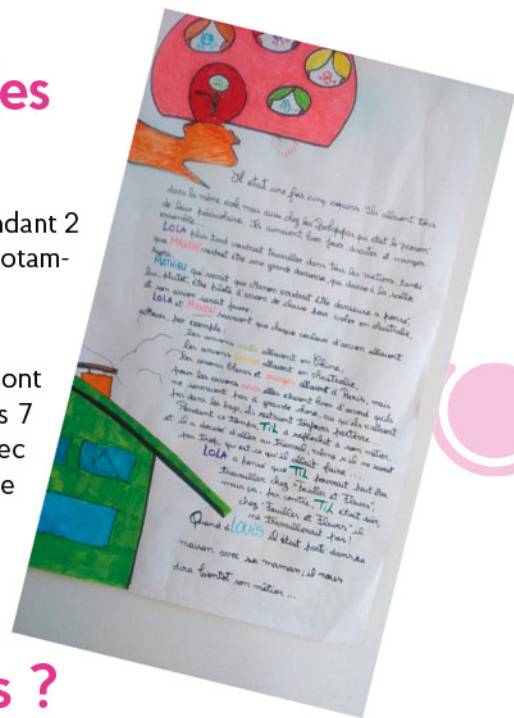 es
dant 2
otam-
ont
s 7
ec
e
s ?
Il était une fois cinq copains. Ils allaient tous
dans la même école mais aussi chez les
de leur périscolaire. Ils aimaient bien faire discuter et manger
ensemble...
LOLA plus tard voudrait travailler dans tous les métiers, tandis
que MANON voudrait être une grande danseuse, qui danse à la salle
MATHIEU qui savait que Manon voudrait être danseuse a pensé,
lui, plutôt, être pilote d'avion de chasse pour voler en Australie,
et son avion serait jaune.
LOLA et MANON savaient que chaque couleur d'avion allaient
ailleurs, par exemple :
les avions verts allaient en Chine,
les avions jaunes allaient en Australie,
les avions blancs et oranges allaient à Paris, mais
pour les avions noirs elles étaient bien d'accord qu'ils
ne servaient pas à grande chose, vu qu'ils n'allaient
pas dans les pays, ils restaient toujours parterre...
Pendant ce temps TIL a réfléchit à son métier,
et il a décidé d'aller au travail, même s'il ne savait
pas trop, qu'est-ce qu'il allait faire...
LOLA a pensé que TIL pourrait peut être
travailler chez "Feuilles et Fleurs",
mais ça, par contre, TIL était sûr,
chez "Feuilles et Fleurs" il
ne travaillerait pas !
Quand à LOUIS il était parti dans sa
maison avec sa maman, il nous
dira bientôt son métier...